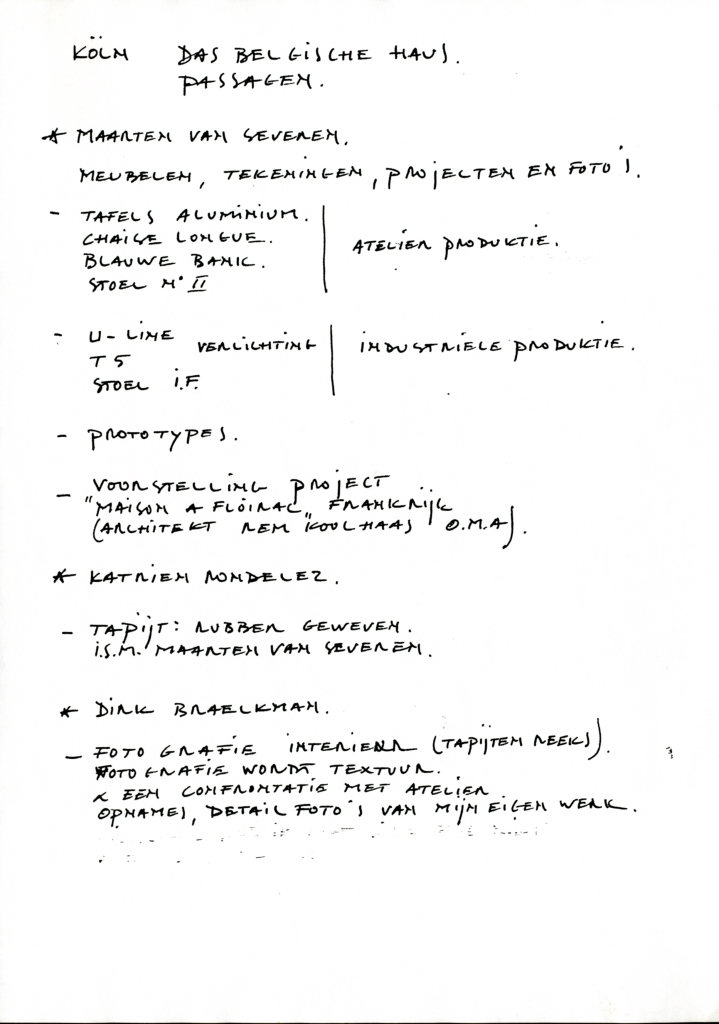 KÖLN DAS BELGISCHE HAUS.
PASSAGEN.
* MAARTEN VAN SEVEREN.
MEUBELEN, TEKENINGEN, PROJECTEN EN FOTO'S.
- TAFELS ALUMINIUM.
CHAISE LONGUE.
BLAUWE BANK.
STOEL N° II
ATELIER PRODUKTIE.
- U-LINE
T5
VERLICHTING
STOEL I.F.
INDUSTRIELE PRODUKTIE.
- PROTOTYPES.
- VOORSTELLING PROJECT
"MAISON A FLOIRAC" FRANKRIJK
(ARCHITEKT REM KOOLHAAS O.M.A).
* KATRIEN RONDELEZ.
- TAPIJT: RUBBER GEWEVEN.
I.S.M. MAARTEN VAN SEVEREN.
* DIRK BRAECKMAN.
- FOTOGRAFIE INTERIEUR (TAPIJTEN REEKS).
FOTOGRAFIE WORDT TEXTUUR.
& EEN CONFRONTATIE MET ATELIER
OPNAMES, DETAIL FOTO'S VAN MIJN EIGEN WERK.